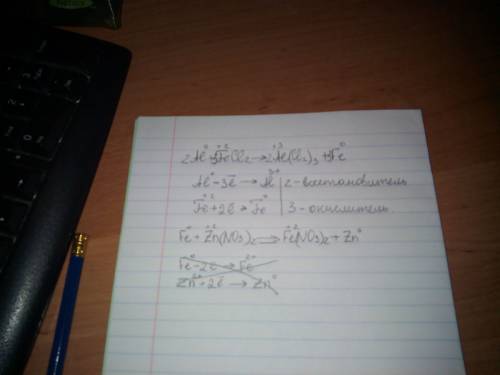 2Al⁰+3Fe⁺²Cl₂→2Al⁺³(Cl₂)₃+3Fe⁰
Al⁰-3ē→Al³⁺|2-восстановитель
Fe⁺²+2ē→Fe⁰|3-окислитель.
Fe⁰+Zn⁺²(NO₃)₂⇄Fe⁺²(NO₃)₂+Zn⁰
Fe⁰-2ē→Fe²⁺
Zn²⁺+2ē→Zn⁰